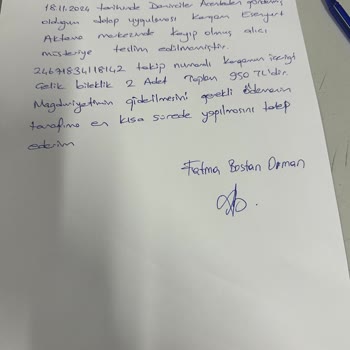 18.11.2024 tarihinde Denizciler Acenteden göndermiş
olduğum dolap uygulaması Kargom Esenyurt
Aktarma merkezinde kayıp olmuş alıcı
müşteriye teslim edilmemiştir.
2469183411842 takip numaralı kargomun içeriği
Çelik bileklik 2 Adet Toplam 950 TL'dir.
Mağduriyetimin giderilmesini gerekli ödemenin
tarafıma en kısa sürede yapılmasını talep
ederim
Fatma Bostan Duman